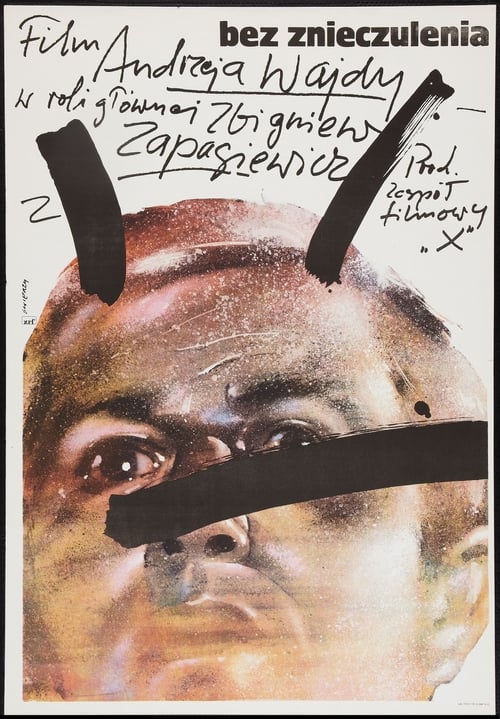 bez znieczulenia
Film
Andrzeja Wajdy
w roli głównej Zbigniew
Zapasiewicz
Prod.
zespół
filmowy
"X"